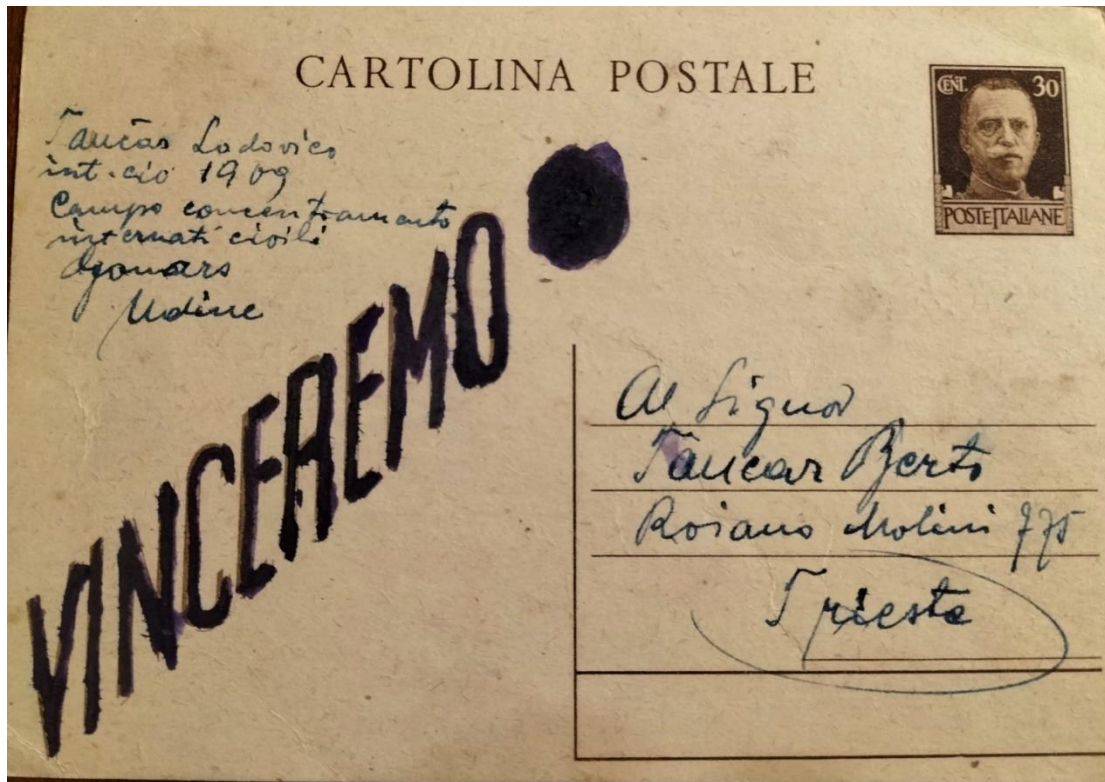 CARTOLINA POSTALE
CENT. 30
POSTE ITALIANE
Taučar Lodovico
int. cio 1909
Campo concentramento
internati civili
Gonars
Udine
VINCEREMO
Al Signor
Taucar Berto
Roiano Molini 775
Trieste